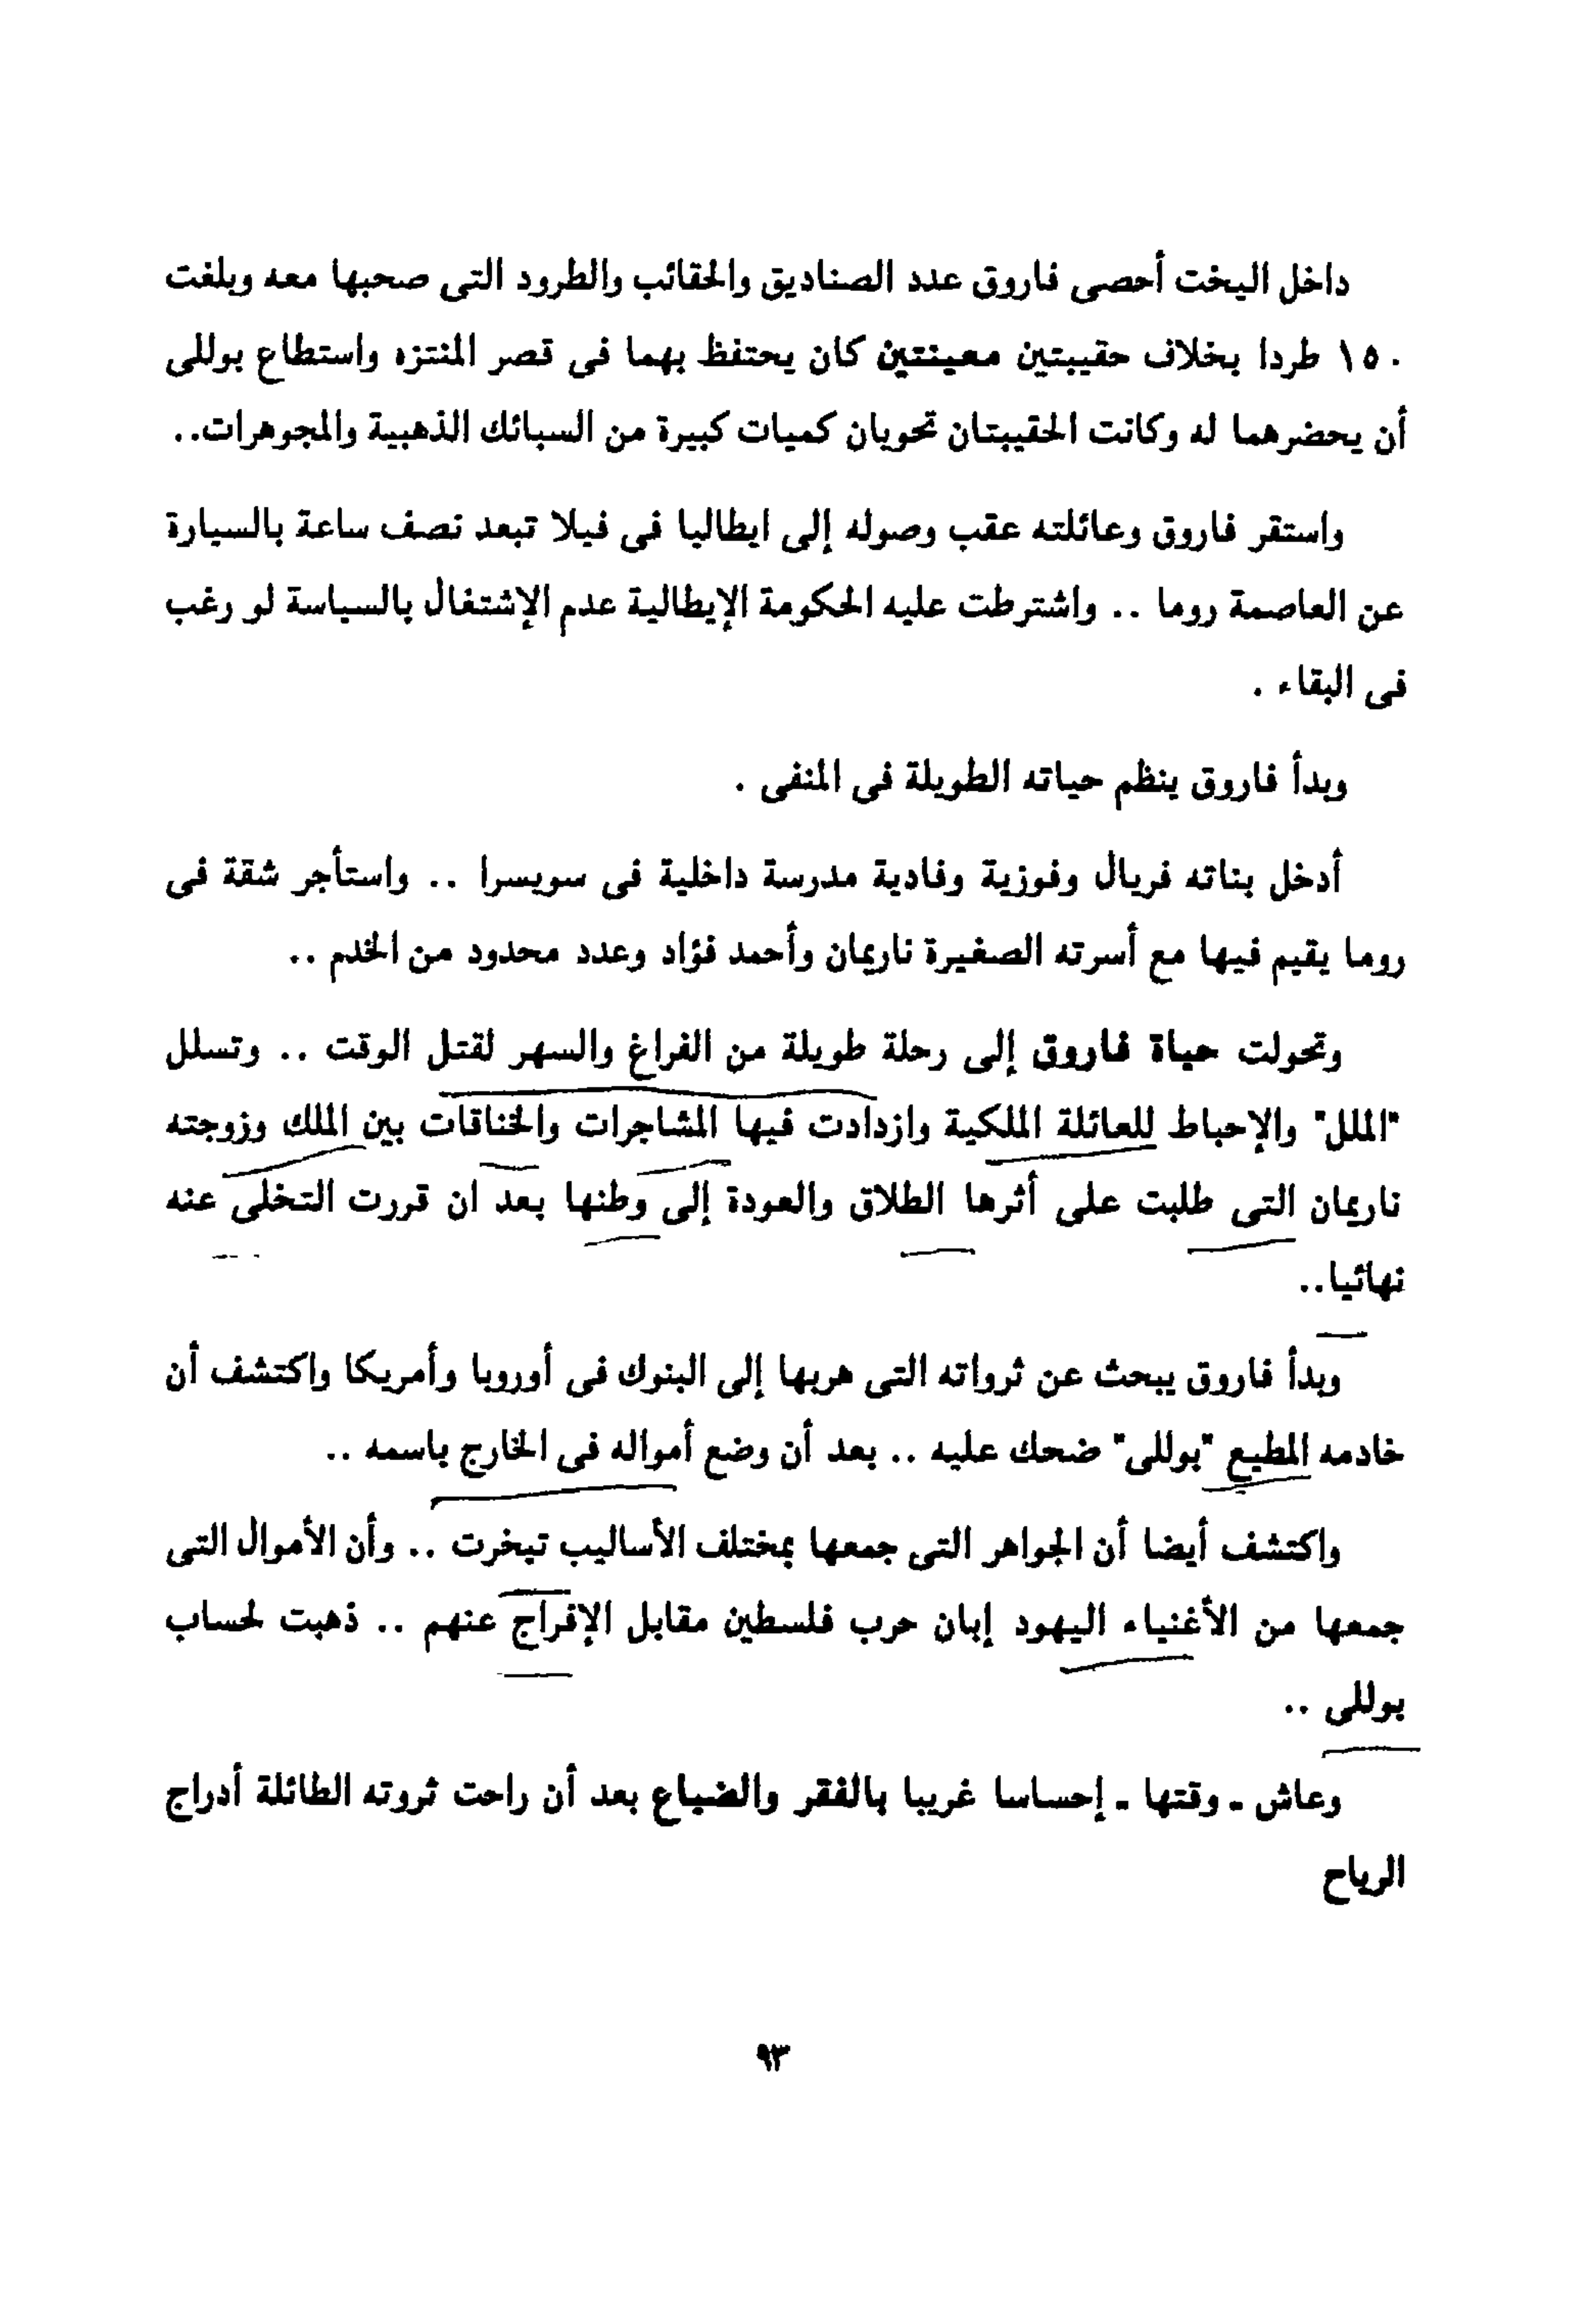 داخل اليخت أحصى فاروق عدد الصناديق والحقائب والطرود التى صحبها معه وبلغت
١٥٠ طردا بخلاف حقيبتين معينتين كان يحتفظ بهما فى قصر المنتزه واستطاع بوللى
أن يحضرهما له وكانت الحقيبتان تحويان كميات كبيرة من السبائك الذهبية والمجوهرات..
واستقر فاروق وعائلته عقب وصوله إلى ايطاليا فى فيلا تبعد نصف ساعة بالسيارة
عن العاصمة روما .. واشترطت عليه الحكومة الإيطالية عدم الإشتغال بالسياسة لو رغب
فى البقاء .
وبدأ فاروق ينظم حياته الطويلة فى المنفى .
أدخل بناته فريال وفوزية وفادية مدرسة داخلية فى سويسرا .. واستأجر شقة فى
روما يقيم فيها مع أسرته الصغيرة ناريمان وأحمد فؤاد وعدد محدود من الخدم ..
وتحولت حياة فاروق إلى رحلة طويلة من الفراغ والسهر لقتل الوقت .. وتسلل
"الملل" والإحباط للعائلة الملكية وازدادت فيها المشاجرات والخناقات بين الملك وزوجته
ناريمان التى طلبت على أثرها الطلاق والعودة إلى وطنها بعد ان قررت التخلى عنه
نهائيا..
وبدأ فاروق يبحث عن ثرواته التى هربها إلى البنوك فى أوروبا وأمريكا واكتشف أن
خادمه المطيع "بوللى" ضحك عليه .. بعد أن وضع أمواله فى الخارج باسمه ..
واكتشف أيضا أن الجواهر التى جمعها بمختلف الأساليب تبخرت .. وأن الأموال التى
جمعها من الأغنياء اليهود إبان حرب فلسطين مقابل الإفراج عنهم .. ذهبت لحساب
بوللى ..
وعاش ـ وقتها ـ إحساسا غريبا بالفقر والضياع بعد أن راحت ثروته الطائلة أدراج
الرياح
٩٣